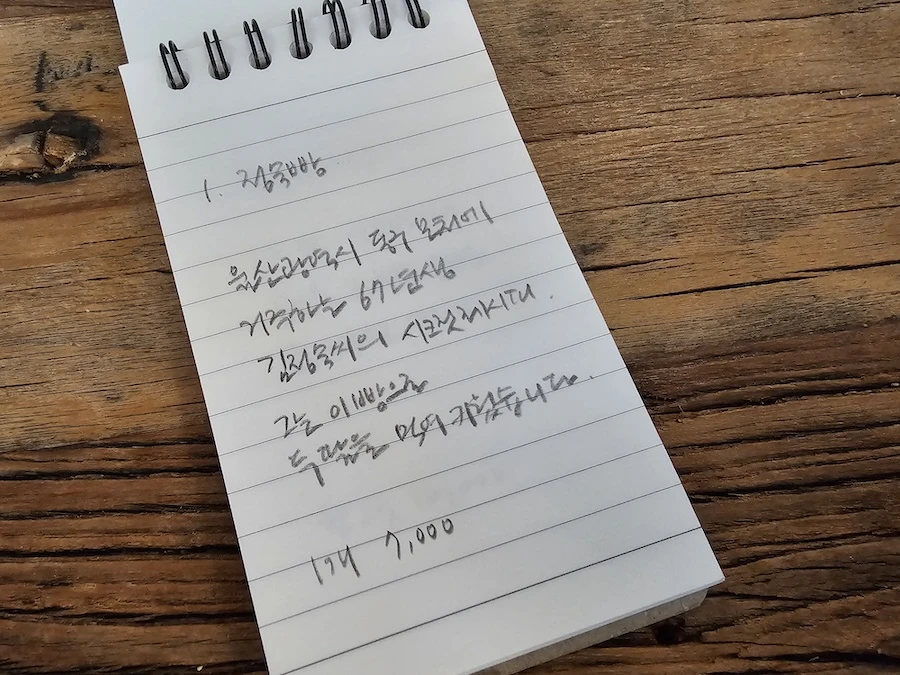 1. 정목빵
울산광역시 동구 모처에
거주하는 67년생
김정목씨의 시크릿레시피.
그는 이 빵으로
두 딸을 먹여 키웠습니다.
1개 7,000